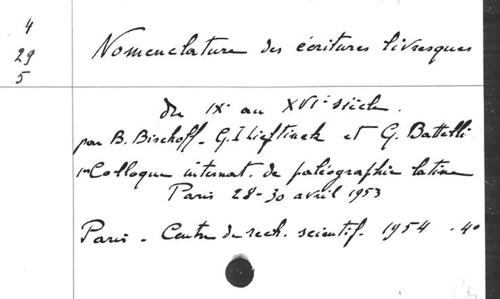 4
29
5
Nomenclature des écritures livresques
du IXe au XVIe siècle.
par B. Bischoff - G. I Lieftinck et G. Battelli
1er Colloque internat. de paléographie latine
Paris 28-30 avril 1953
Paris - Centre de rech. scientif. 1954 - 4o